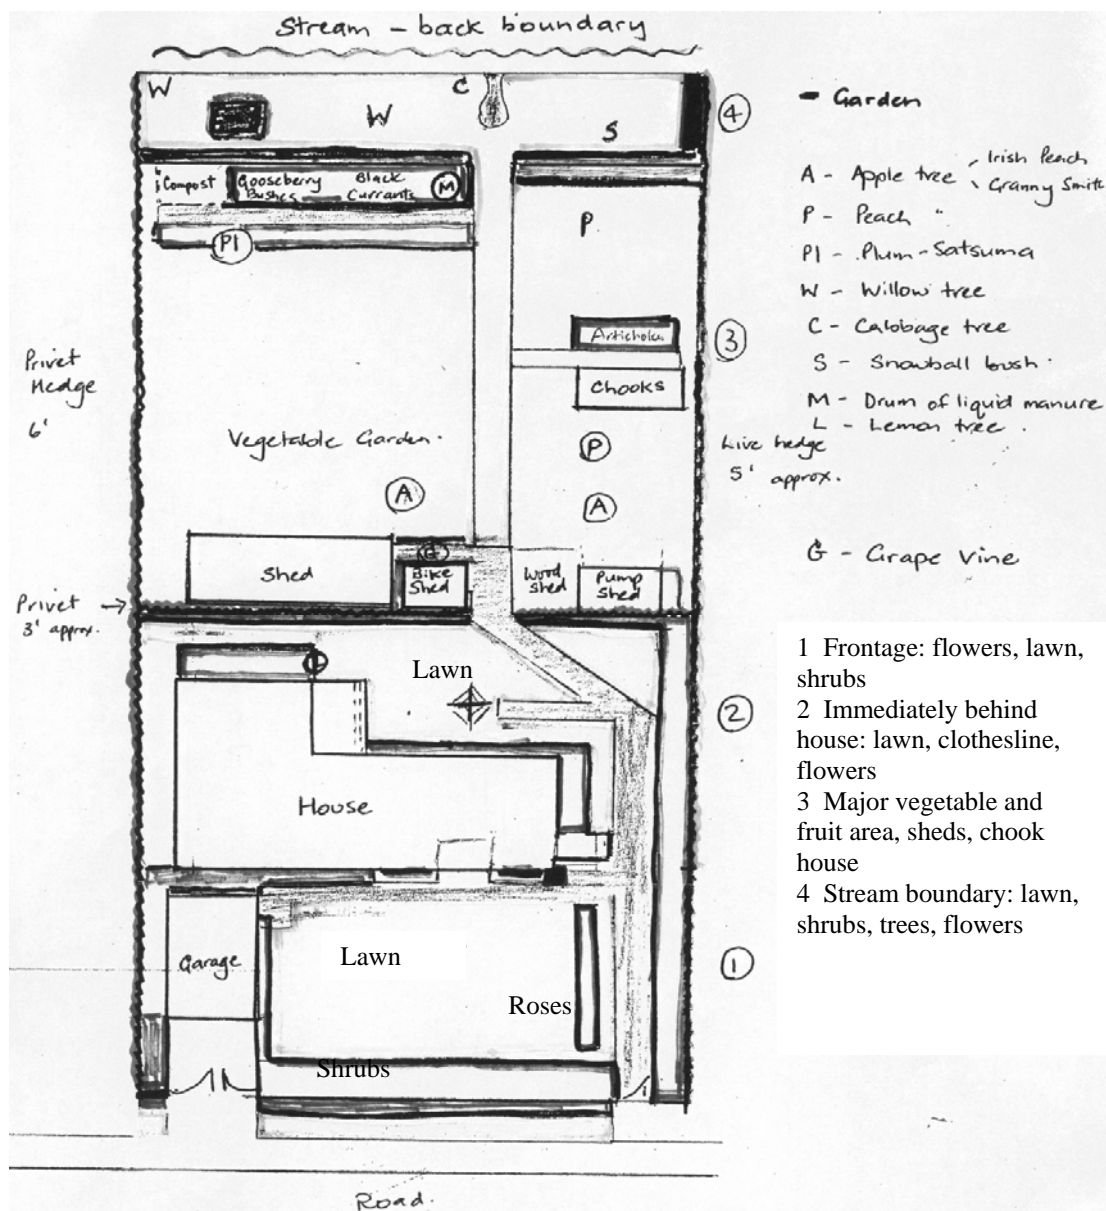 Stream - back boundary
W
C
W
S
4
Compost
Gooseberry
Bushes
Black
Currants
M
Pl
P
Artichokes
3
Chooks
Privet
Hedge
6'
Vegetable Garden.
P
A
A
Live hedge
5' approx.
Shed
G
Bike
Shed
Wood
Shed
Pump
Shed
Privet →
3' approx.
Lawn
2
House
Garage
Lawn
Roses
1
Shrubs
Road.
- Garden
A - Apple tree
Irish Peach
Granny Smith
P - Peach "
Pl - Plum - Satsuma
W - Willow tree
C - Cabbage tree
S - Snowball bush
M - Drum of liquid manure
L - Lemon tree
G - Grape Vine
1 Frontage: flowers, lawn,
shrubs
2 Immediately behind
house: lawn, clothesline,
flowers
3 Major vegetable and
fruit area, sheds, chook
house
4 Stream boundary: lawn,
shrubs, trees, flowers